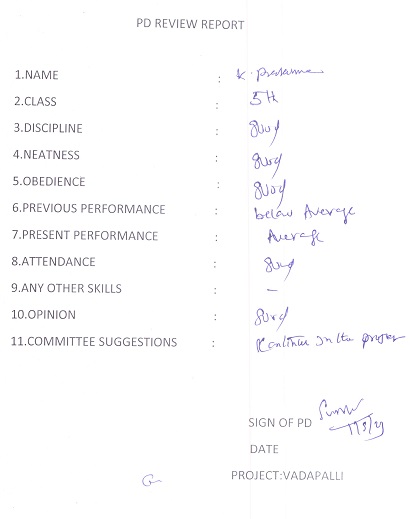 PD REVIEW REPORT
1.NAME : K. Prasanna
2.CLASS : 5th
3.DISCIPLINE : Good
4.NEATNESS : Good
5.OBEDIENCE : Good
6.PREVIOUS PERFORMANCE : below Average
7.PRESENT PERFORMANCE : Average
8.ATTENDANCE : Good
9.ANY OTHER SKILLS : -
10.OPINION : Good
11.COMMITTEE SUGGESTIONS : Continue in the
SIGN OF PD
DATE
PROJECT:VADAPALLI